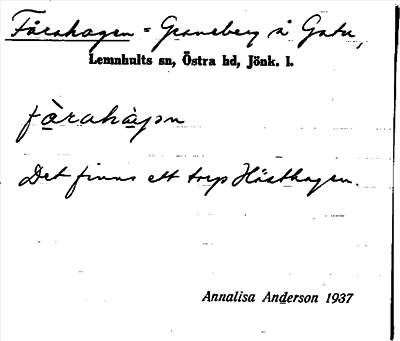 Fårahagen = Graneberg å Gatu,
Lemnhults sn, Östra hd, Jönk. l.
fàrahàgən
Det finns ett torp Hästhagen.
Annalisa Anderson 1937